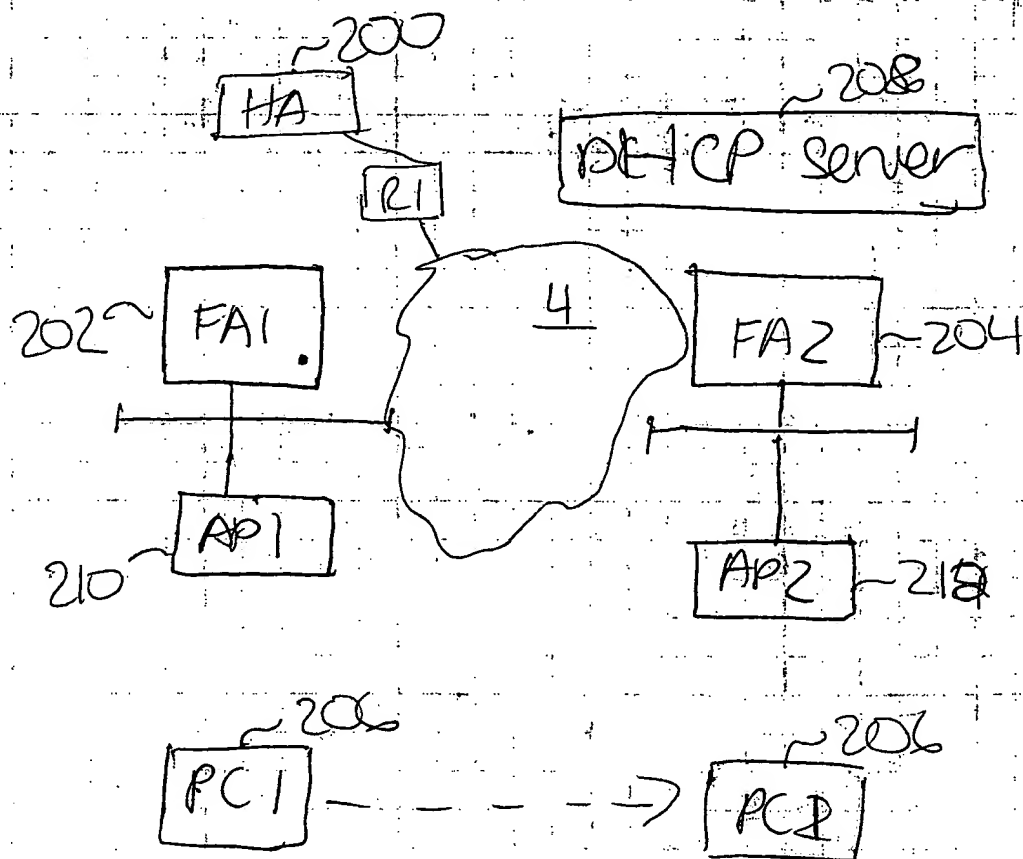 200
HA
208
DHCP server
R1
4
202
FA1
FA2
204
AP1
210
AP2
212
206
PC1
206